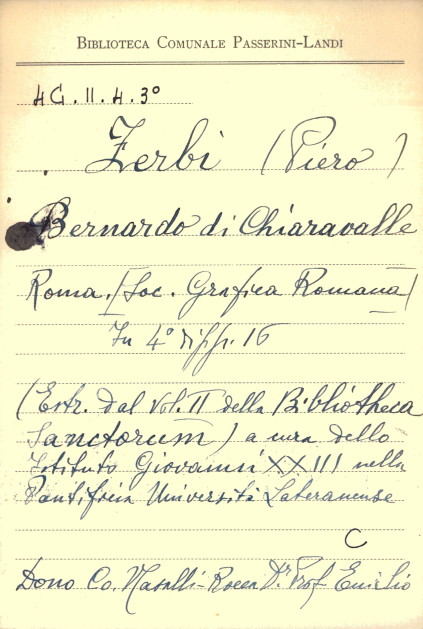 BIBLIOTECA COMUNALE PASSERINI-LANDI
4G.II.4.3°
Zerbi (Piero)
Bernardo di Chiaravalle
Roma. [Soc. Grafica Romana]
In 4° di ff. 16
(Estr. dal Vol. II della Bibliotheca
Sanctorum) a cura dello
Istituto Giovanni XXIII nella
Pontificia Università Lateranense
C
Dono Co. Nasalli-Rocca Dr. Prof Emilio